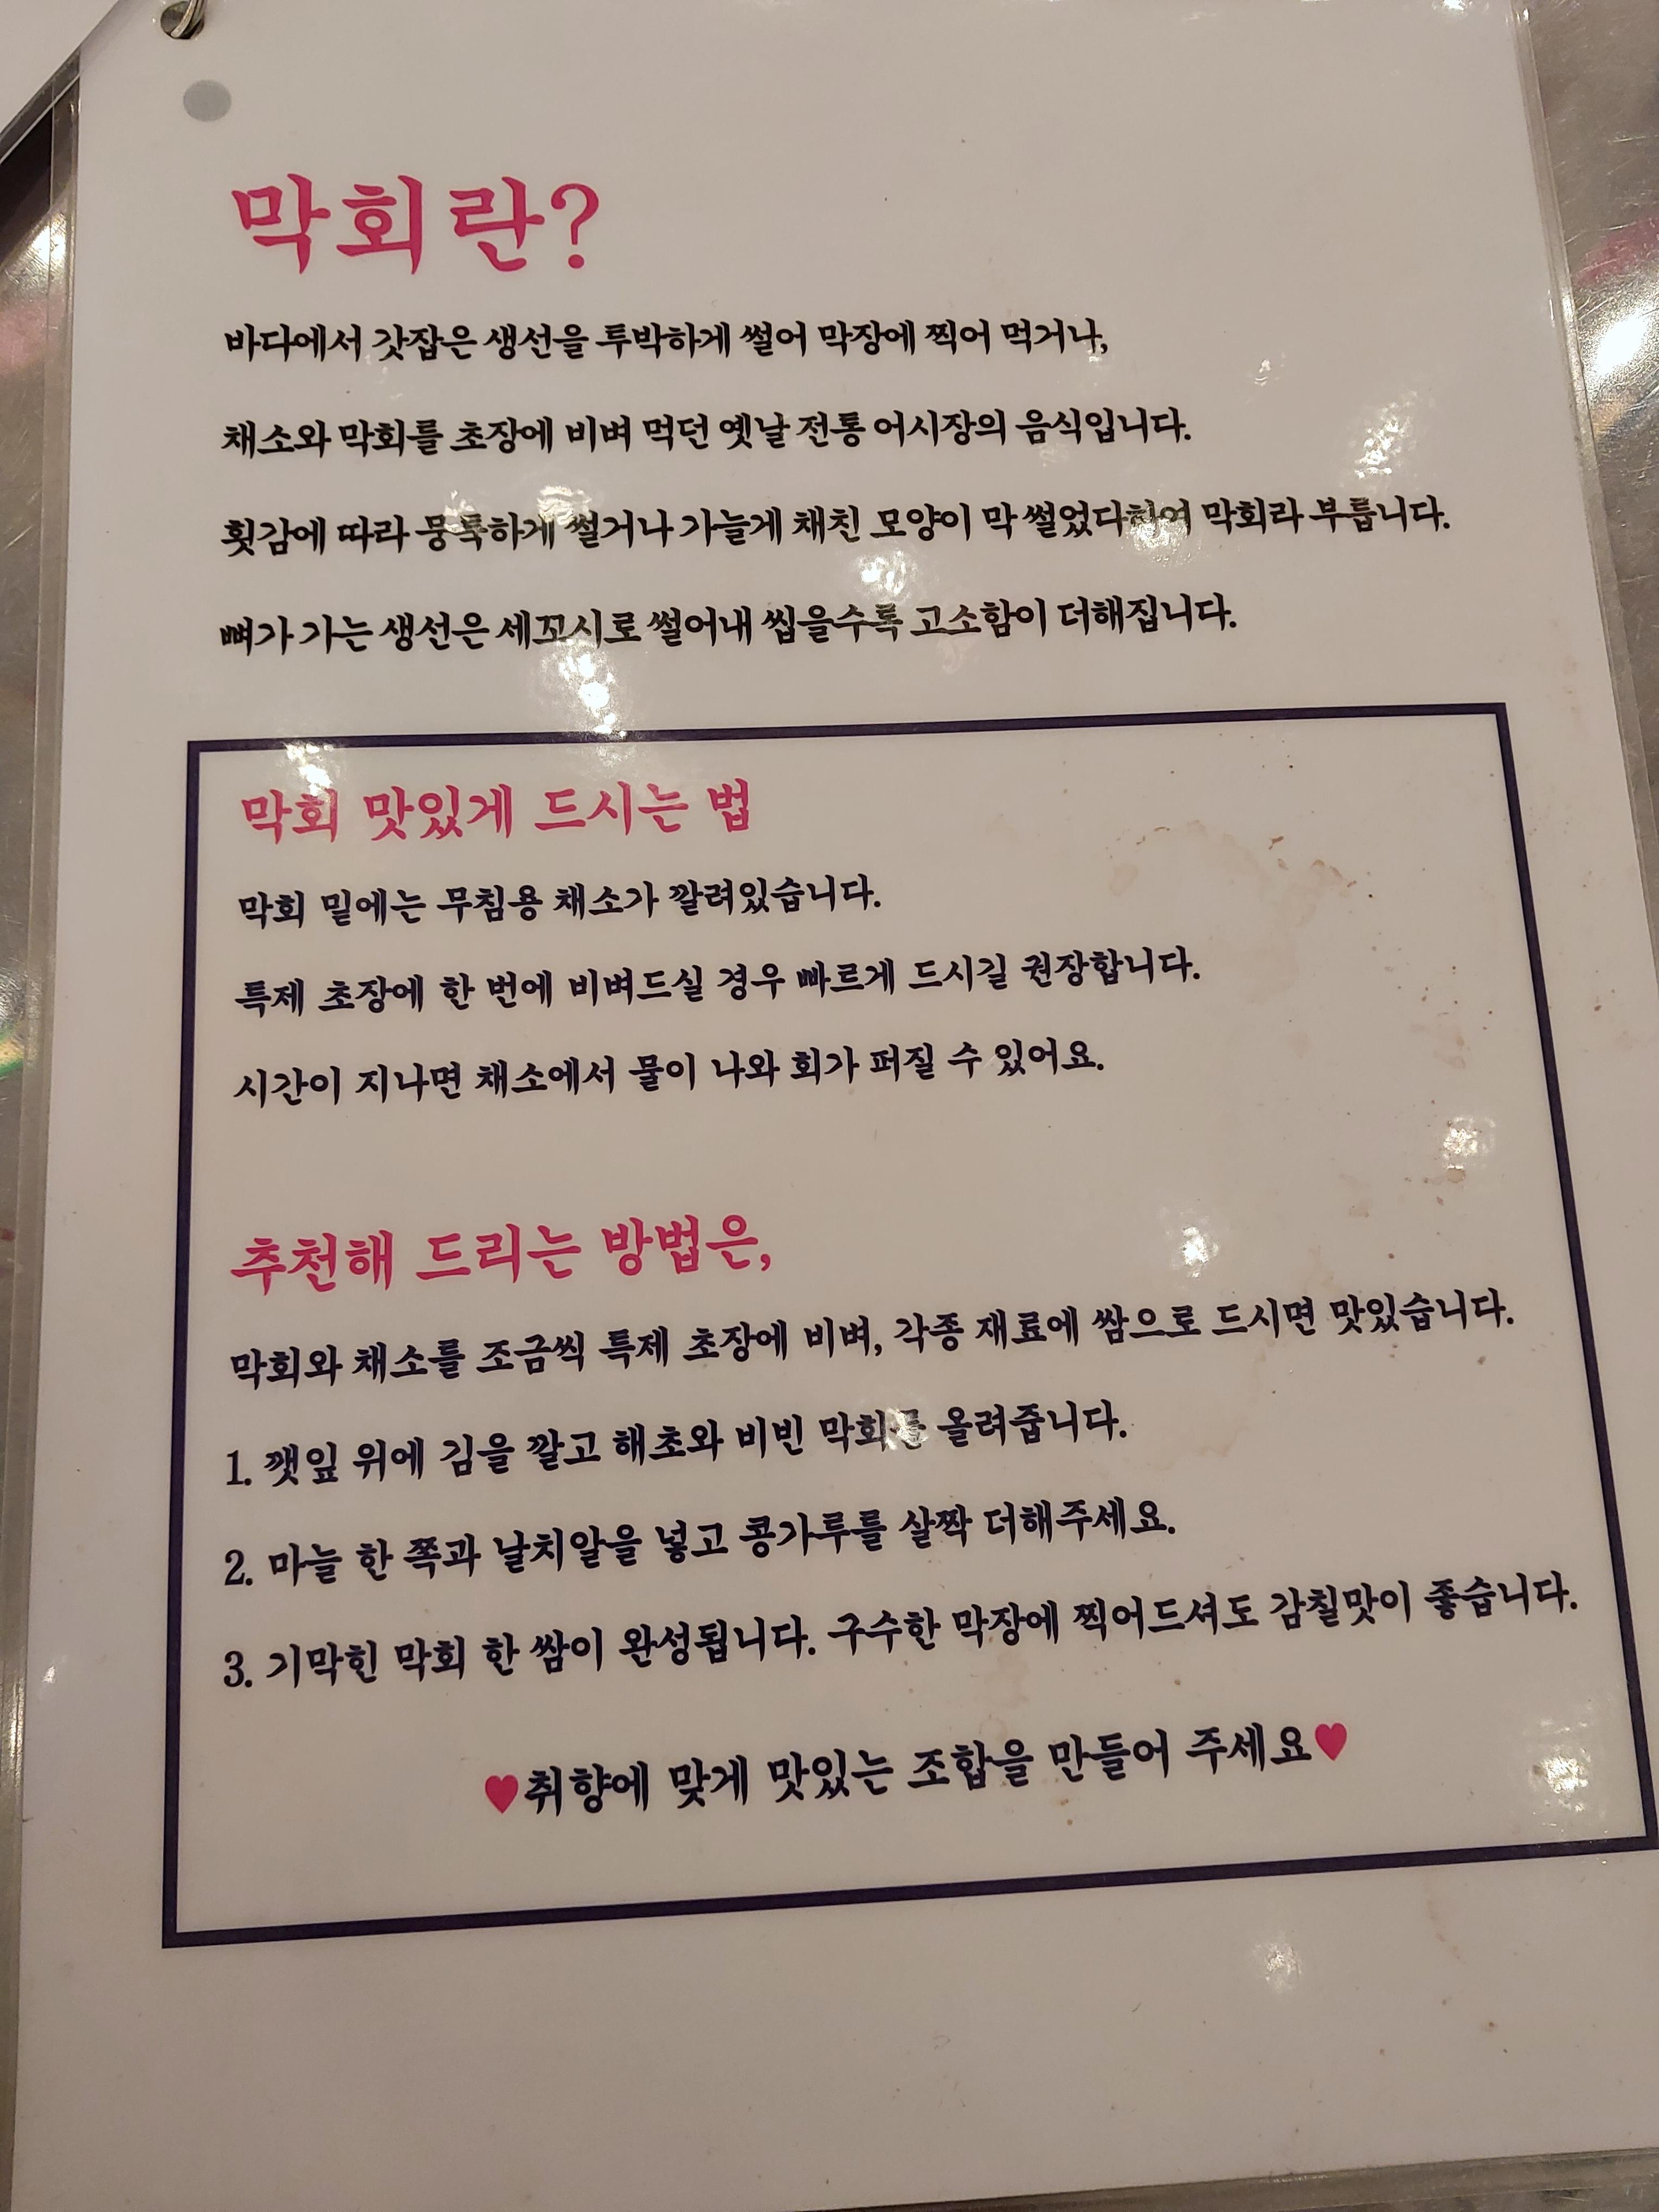 막회란?
바다에서 갓잡은 생선을 투박하게 썰어 막장에 찍어 먹거나,
채소와 막회를 초장에 비벼 먹던 옛날 전통 어시장의 음식입니다.
횟감에 따라 뭉툭하게 썰거나 가늘게 채친 모양이 막 썰었다하여 막회라 부릅니다.
뼈가 가는 생선은 세꼬시로 썰어내 씹을수록 고소함이 더해집니다.
막회 맛있게 드시는 법
막회 밑에는 무침용 채소가 깔려있습니다.
특제 초장에 한 번에 비벼드실 경우 빠르게 드시길 권장합니다.
시간이 지나면 채소에서 물이 나와 회가 퍼질 수 있어요.
추천해 드리는 방법은,
막회와 채소를 조금씩 특제 초장에 비벼, 각종 재료에 쌈으로 드시면 맛있습니다.
1. 깻잎 위에 김을 깔고 해초와 비빈 막회를 올려줍니다.
2. 마늘 한 쪽과 날치알을 넣고 콩가루를 살짝 더해주세요.
3. 기막힌 막회 한 쌈이 완성됩니다. 구수한 막장에 찍어드셔도 감칠맛이 좋습니다.
♥취향에 맞게 맛있는 조합을 만들어 주세요♥